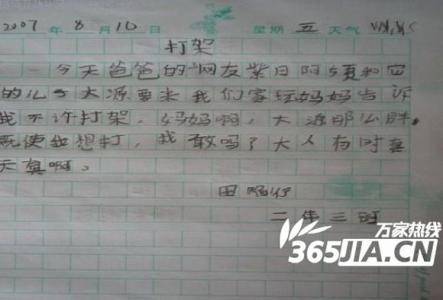 2007年8月10日 星期五天气
打架
今天爸爸的网友紫日阿姨和它
的儿子大源要来我们家玩妈妈告诉
我不许打架。妈妈啊，大源那么胖。
既使我想打，我敢吗？大人有时真
天真啊。
田
二年三班
万家热线
365JIA.CN